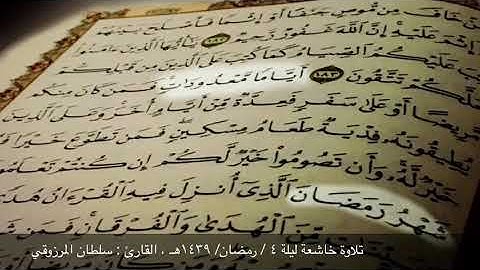 خَافَ مِن مُّوصٍ جَنَفًا أَوْ إِثْمًا فَأَصْلَحَ بَيْنَهُمْ
إِثْمَ عَلَيْهِ إِنَّ ٱللَّهَ غَفُورٌ رَّحِيمٌ ١٨٢ يَٰٓأَيُّهَا ٱلَّذِينَ ءَامَنُوا۟
عَلَيْكُمُ ٱلصِّيَامُ كَمَا كُتِبَ عَلَى ٱلَّذِينَ مِن قَبْلِكُمْ
لَعَلَّكُمْ تَتَّقُونَ ١٨٣ أَيَّامًا مَّعْدُودَٰتٍ فَمَن كَانَ مِنكُم
مَّرِيضًا أَوْ عَلَىٰ سَفَرٍ فَعِدَّةٌ مِّنْ أَيَّامٍ أُخَرَ وَعَلَى ٱلَّذِينَ
يُطِيقُونَهُۥ فِدْيَةٌ طَعَامُ مِسْكِينٍ فَمَن تَطَوَّعَ خَيْرًا فَ
خَيْرٌ لَّهُۥ وَأَن تَصُومُوا۟ خَيْرٌ لَّكُمْ إِن كُنتُمْ تَعْلَمُو
شَهْرُ رَمَضَانَ ٱلَّذِىٓ أُنزِلَ فِيهِ ٱلْقُرْءَانُ هُدًى
مِّنَ ٱلْهُدَىٰ وَٱلْفُرْقَانِ فَمَن شَهِ
تلاوة خاشعة ليلة ٤ / رمضان/ ١٤٣٩هـ ، القارئ : سلطان المرزوقي